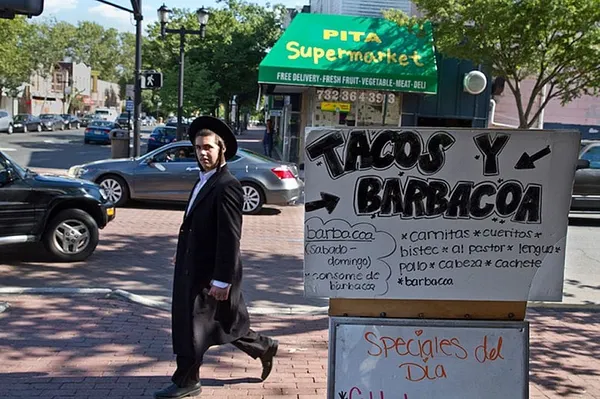 PITA
Supermarket
FREE DELIVERY - FRESH FRUIT - VEGETABLE - MEAT - DELI
TACOS Y
BARBACOA
barbacoa
(sabado-
domingo)
*consome de
barbacoa
*carnitas *cueritos*
bistec * al pastor * lengua *
pollo * cabeza * cachete
*barbacoa
Speciales del
Dia